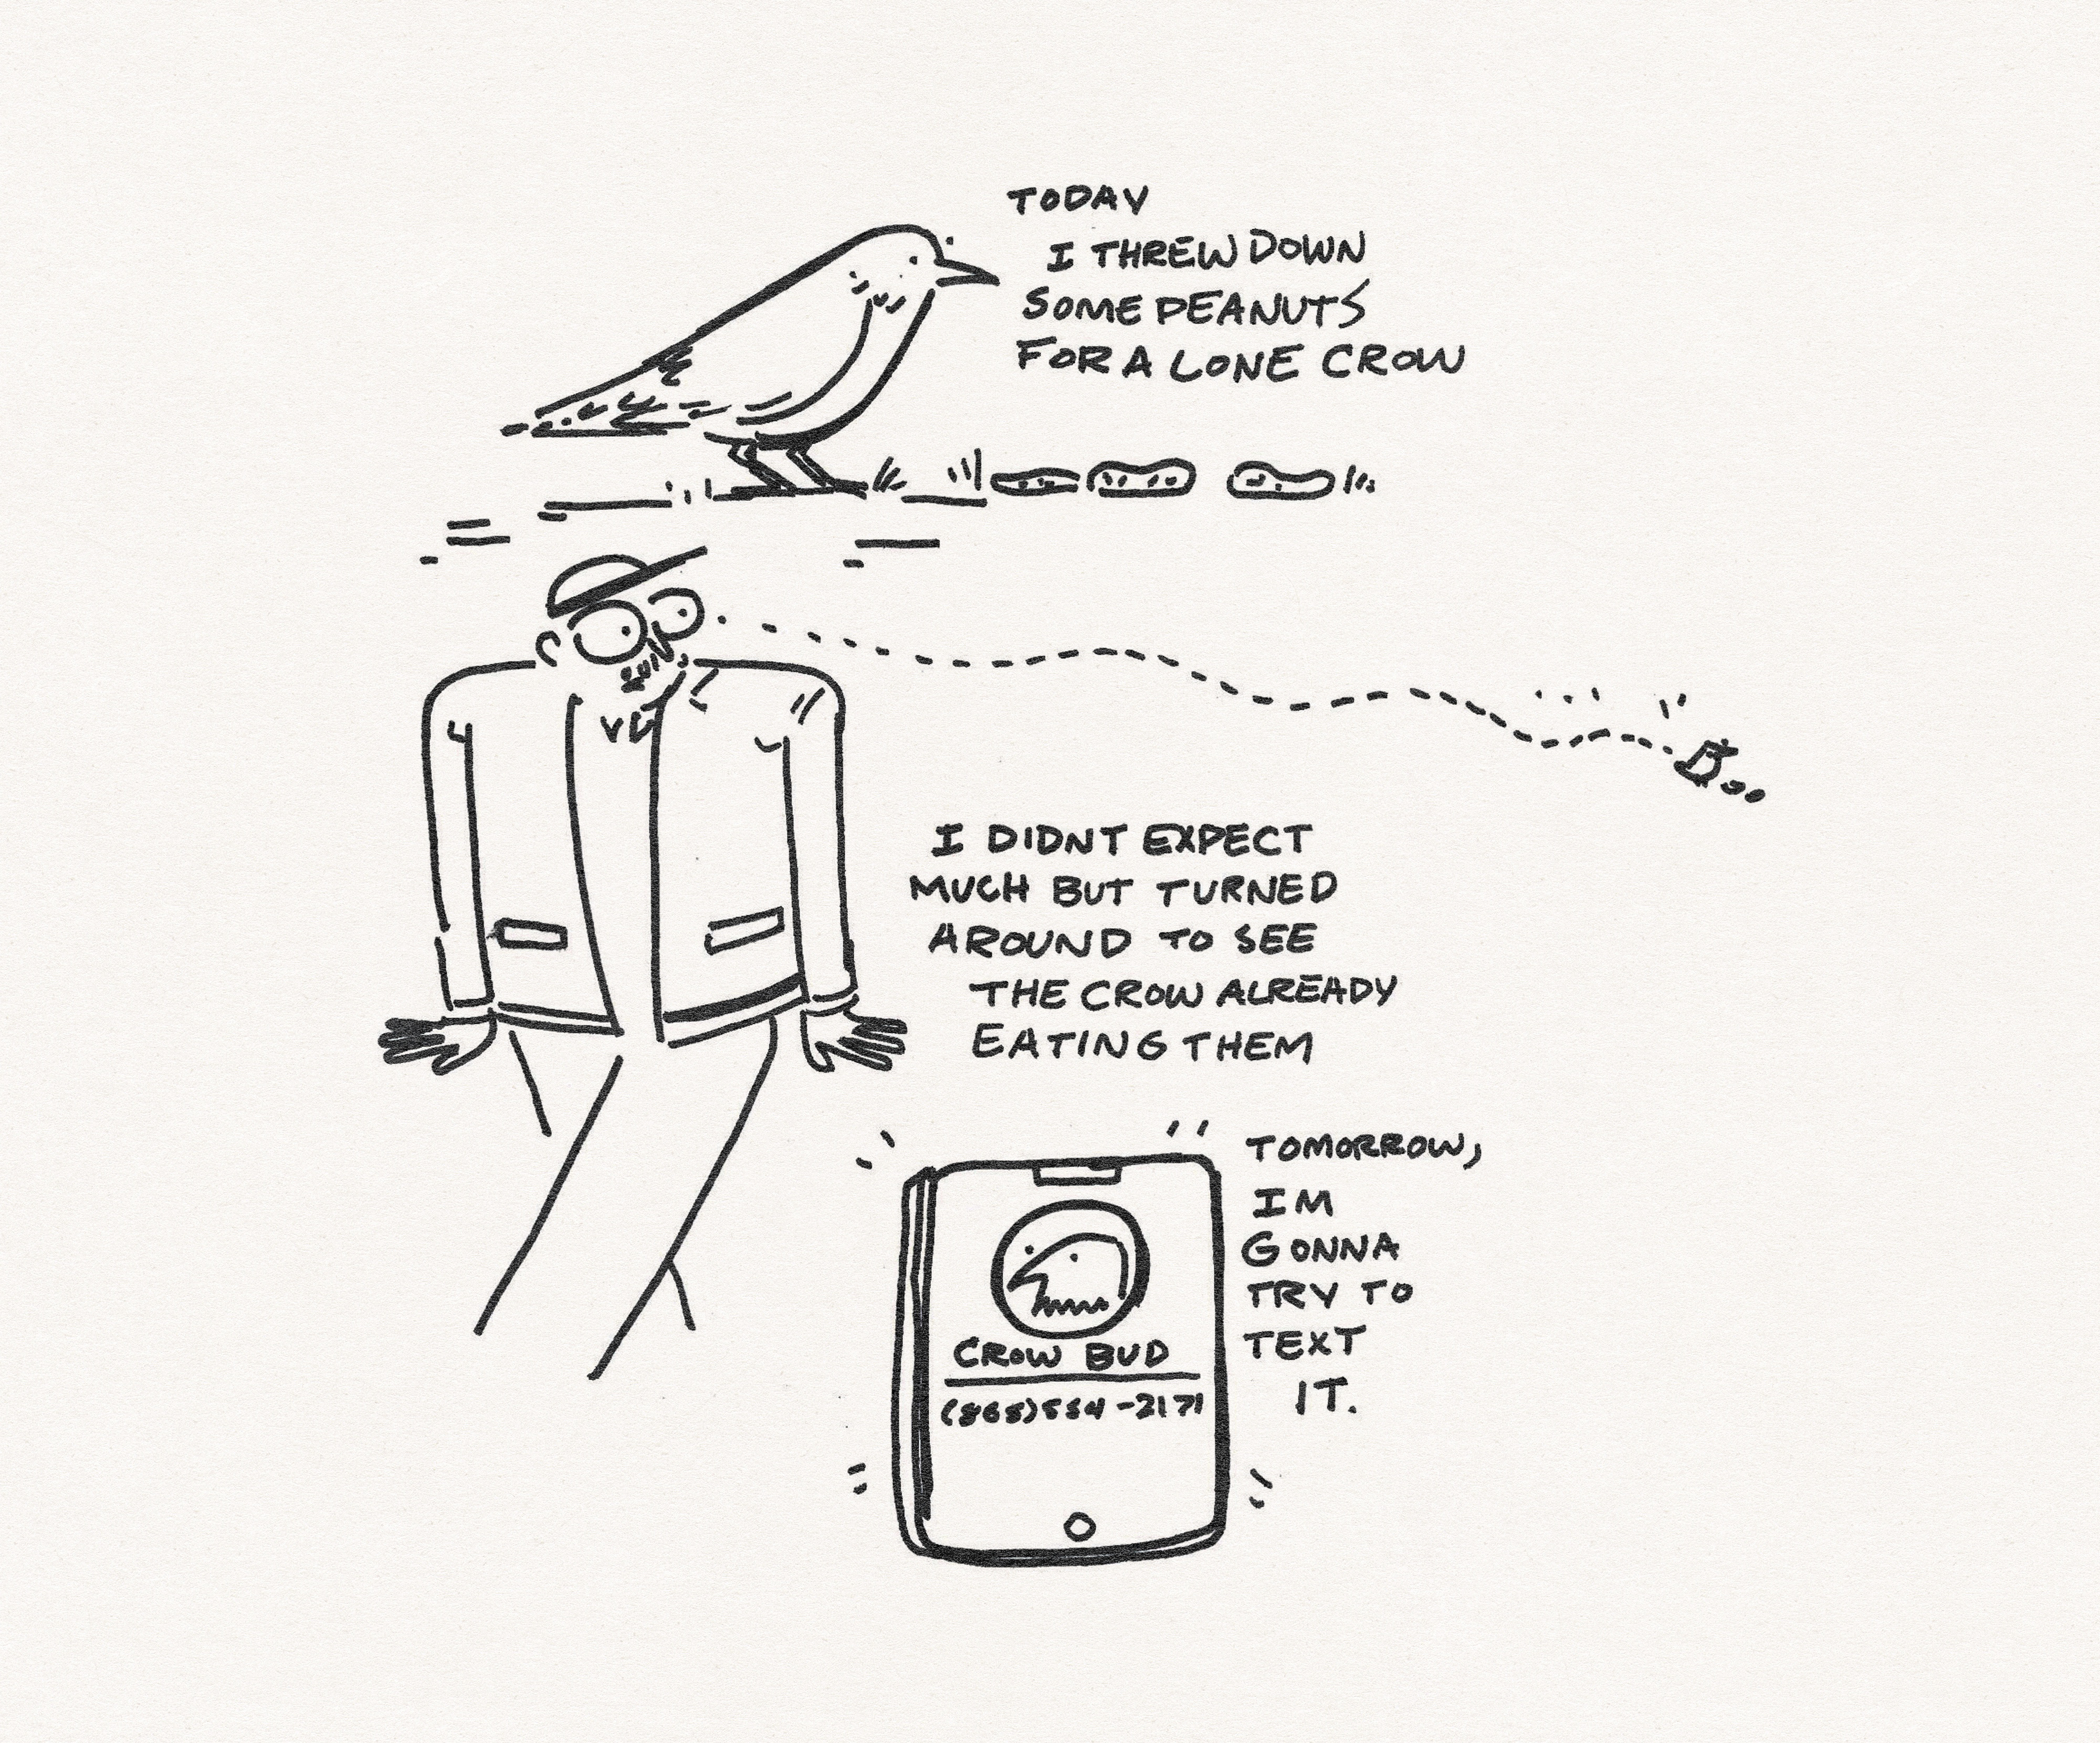 TODAY
I THREW DOWN
SOME PEANUTS
FOR A LONE CROW
I DIDNT EXPECT
MUCH BUT TURNED
AROUND TO SEE
THE CROW ALREADY
EATING THEM
TOMORROW,
IM
GONNA
TRY TO
TEXT
IT.
CROW BUD
(865)554-2171